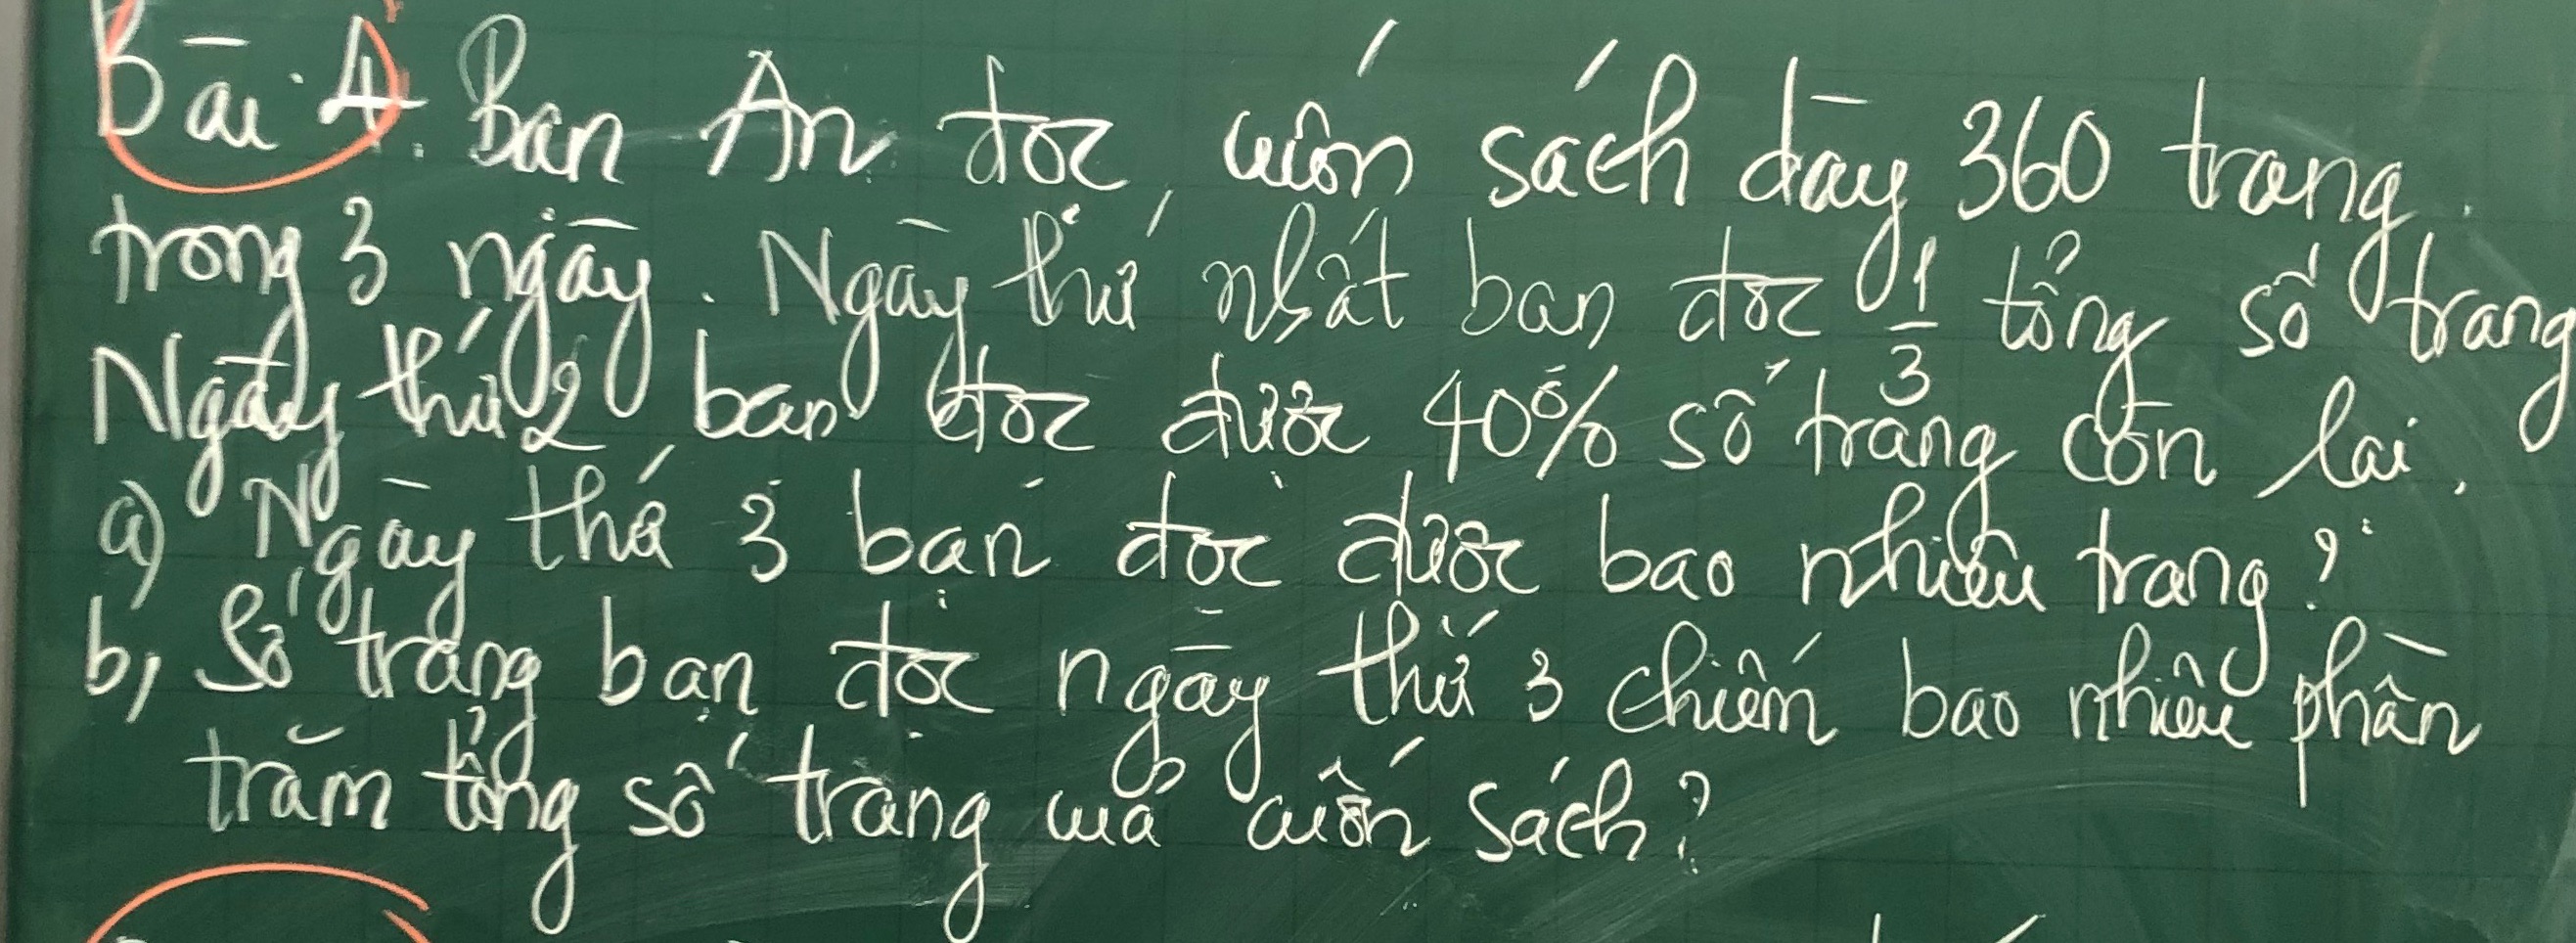 Bài 4. Bạn An đọc cuốn sách dày 360 trang
trong 3 ngày. Ngày thứ nhất bạn đọc 1/3 tổng số trang
Ngày thứ 2 bạn đọc được 40% số trang còn lại.
a) Ngày thứ 3 bạn đọc được bao nhiêu trang?
b, Số trang bạn đọc ngày thứ 3 chiếm bao nhiêu phần
trăm tổng số trang của cuốn sách?